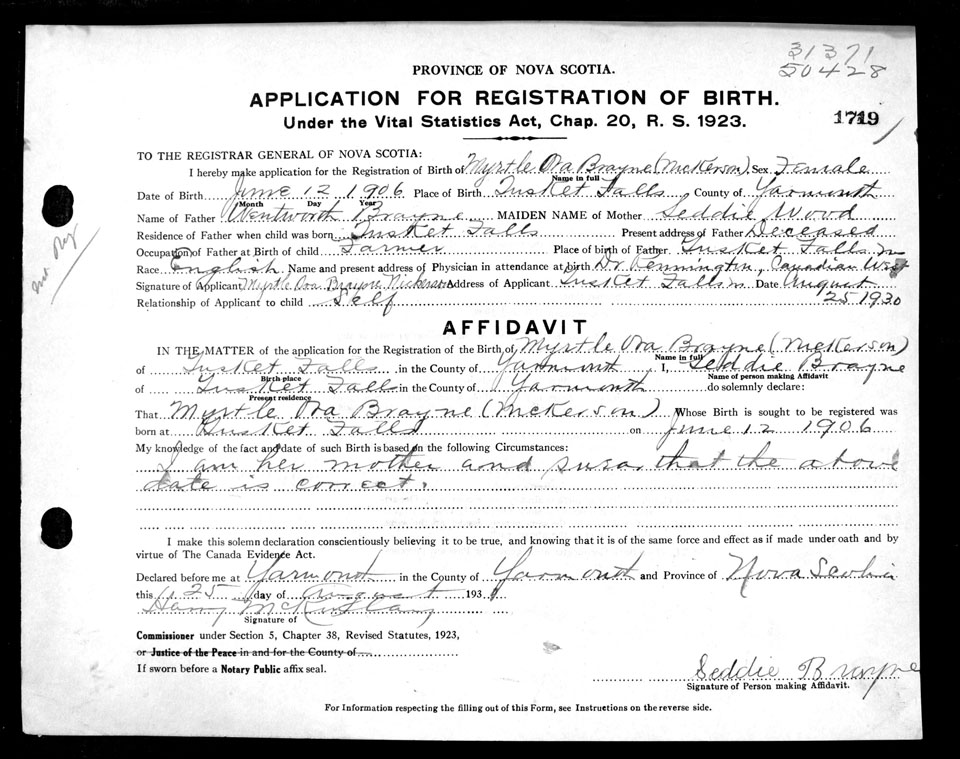 31371
50428
PROVINCE OF NOVA SCOTIA.
APPLICATION FOR REGISTRATION OF BIRTH.
Under the Vital Statistics Act, Chap. 20, R. S. 1923.
1719
TO THE REGISTRAR GENERAL OF NOVA SCOTIA:
I hereby make application for the Registration of Birth of Myrtle Ora Brayne (Nickerson) Sex Female
Name in full
Date of Birth June 12, 1906 Place of Birth Tusket Falls, County of Yarmouth
Month Day Year
Name of Father Wentworth Brayne MAIDEN NAME of Mother Seddie Wood
Residence of Father when child was born Tusket Falls Present address of Father Deceased
Occupation of Father at Birth of child Farmer Place of birth of Father Tusket Falls
Race English Name and present address of Physician in attendance at birth Dr. Kennington, Canadian West
Signature of Applicant Myrtle Ora Brayne Nickerson Address of Applicant Tusket Falls Date August
Relationship of Applicant to child Self 25 1930
AFFIDAVIT
IN THE MATTER of the application for the Registration of the Birth of Myrtle Ora Brayne (Nickerson)
Name in full
of Tusket Falls in the County of Yarmouth I, Seddie Brayne
Birth place Name of person making Affidavit
of Tusket Falls in the County of Yarmouth do solemnly declare:
Present residence
That Myrtle Ora Brayne (Nickerson) Whose Birth is sought to be registered was
born at Tusket Falls on June 12 1906
My knowledge of the fact and date of such Birth is based on the following Circumstances:
I am her mother and sure that the above
date is correct.
I make this solemn declaration conscientiously believing it to be true, and knowing that it is of the same force and effect as if made under oath and by
virtue of The Canada Evidence Act.
Declared before me at Yarmouth in the County of Yarmouth and Province of Nova Scotia
this 25 day of August 193
Harry
Signature of
Commissioner under Section 5, Chapter 38, Revised Statutes, 1923,
or Justice of the Peace in and for the County of
If sworn before a Notary Public affix seal.
Seddie Brayne
Signature of Person making Affidavit.
For Information respecting the filling out of this Form, see Instructions on the reverse side.